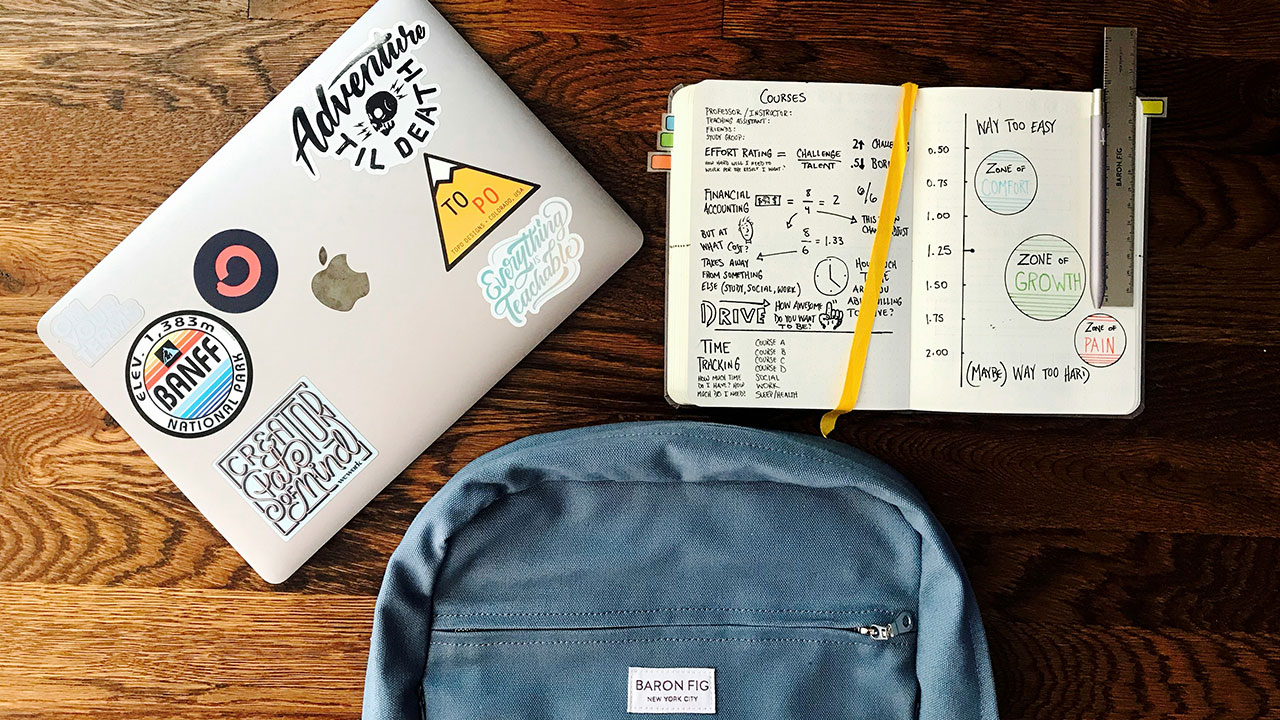 Adventure
'TIL DEATH
TO PO
TOPO DESIGNS • COLORADO, USA
Everything
is
Teachable
ELEV. 1,383m
BANFF
NATIONAL PARK
CREATOR
Patron
OF Mind
wework
COURSES
PROFESSOR / INSTRUCTOR:
TEACHING ASSISTANT:
FRIENDS:
STUDY GROUP:
EFFORT RATING = CHALLENGE
TALENT
HOW HARD WILL I NEED TO
WORK FOR THE RESULT I WANT?
2↑
.5↓
FINANCIAL
ACCOUNTING = 8/4 = 2
6/6
THIS
BUT AT
WHAT COST?
8/6 = 1.33
TAKES AWAY
FROM SOMETHING
ELSE (STUDY, SOCIAL, WORK)
DRIVE
HOW AWESOME
DO YOU WANT
TO BE?
TIME
TRACKING
HOW MUCH TIME
DO I HAVE? HOW
MUCH DO I NEED?
COURSE A
COURSE B
COURSE C
COURSE D
SOCIAL
WORK
SLEEP/HEALTH
WAY TOO EASY
0.50
0.75
1.00
1.25
1.50
1.75
2.00
ZONE OF
COMFORT
ZONE OF
GROWTH
ZONE OF
PAIN
(MAYBE) WAY TOO HARD
BARON FIG
BARON FIG
NEW YORK CITY